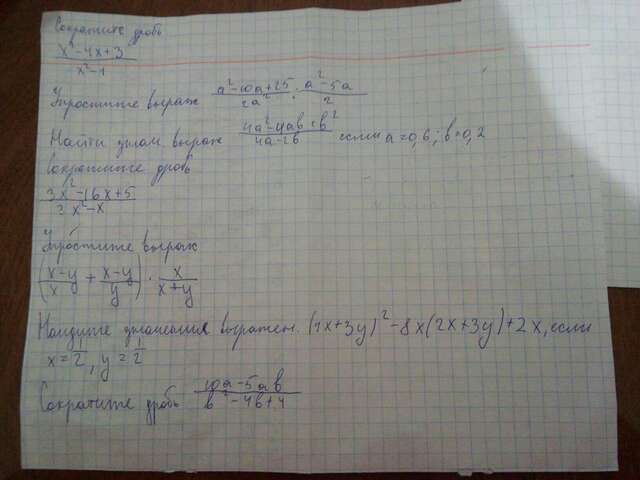 Сократите дробь
x² - 4x + 3 / x² - 1
Упростите выраж a² - 10a + 25 / 2a² : a² - 5a / 2
Найти знач. выраж 4a² - 4ab + b² / 4a - 2b если a = 0,6; b = 0,2
Сократите дробь
3x² - 16x + 5 / 3x² - x
Упростите выраж
(x-y / x + x-y / y) · x / x+y
Найдите значения выражен. (4x+3y)² - 8x(2x+3y) + 2x, если
x = 1/2, y = 1/2
Сократите дробь 10a - 5ab / b² - 4b + 4